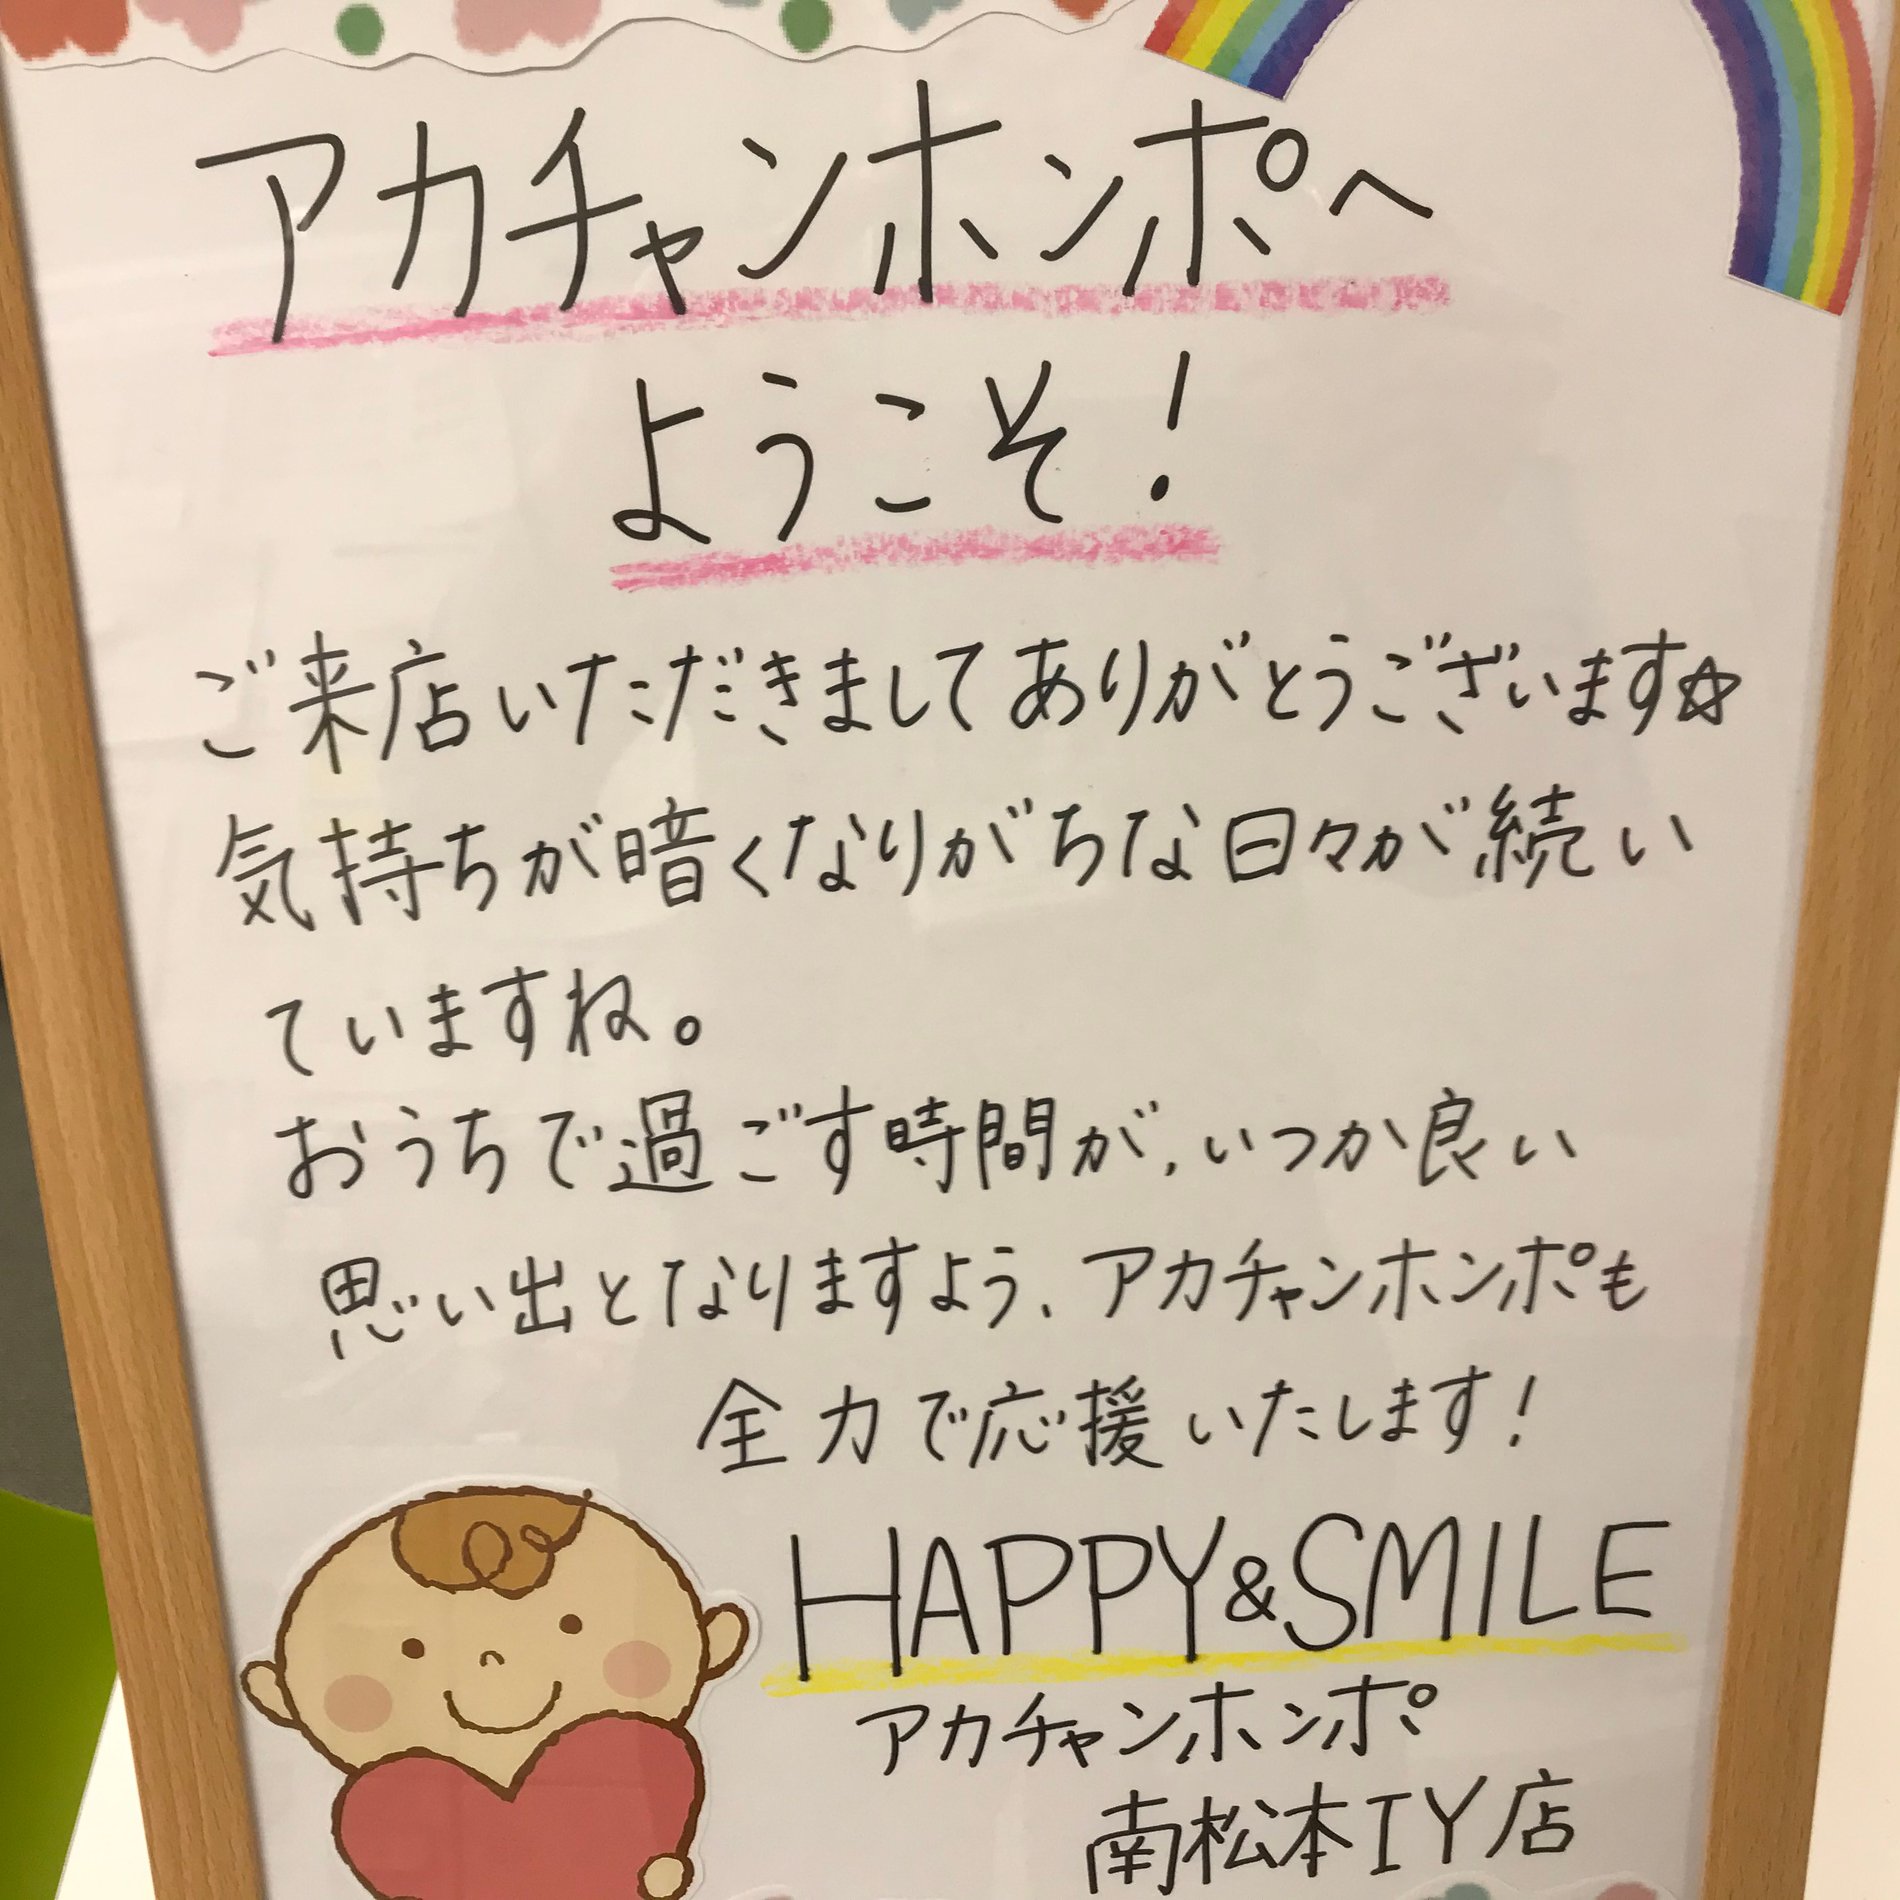 アカチャンホンポへ
ようこそ！
ご来店いただきましてありがとうございます☆
気持ちが暗くなりがちな日々が続い
ていますね。
おうちで過ごす時間が、いつか良い
思い出となりますよう、アカチャンホンポも
全力で応援いたします！
HAPPY&SMILE
アカチャンホンポ
南松本IY店